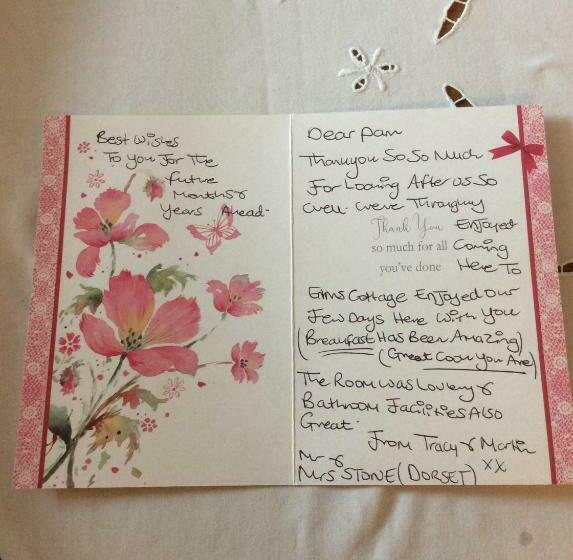 Best Wishes
To You For The
Future
Months &
Years Ahead-
Dear Pam
Thankyou So So Much
For Looing After us So
Well. Weve Throughy
Thank You Enjoyed
so much for all Coming
you've done Here To
Elms Cottage Enjoyed Our
Few Days Here With You
(Breakfast Has Been Amazing)
(Great Cook You Are)
The Room was Lovely &
Bathroom Facilities Also
Great.
From Tracy & Martin
Mr &
Mrs STONE (DORSET) xx